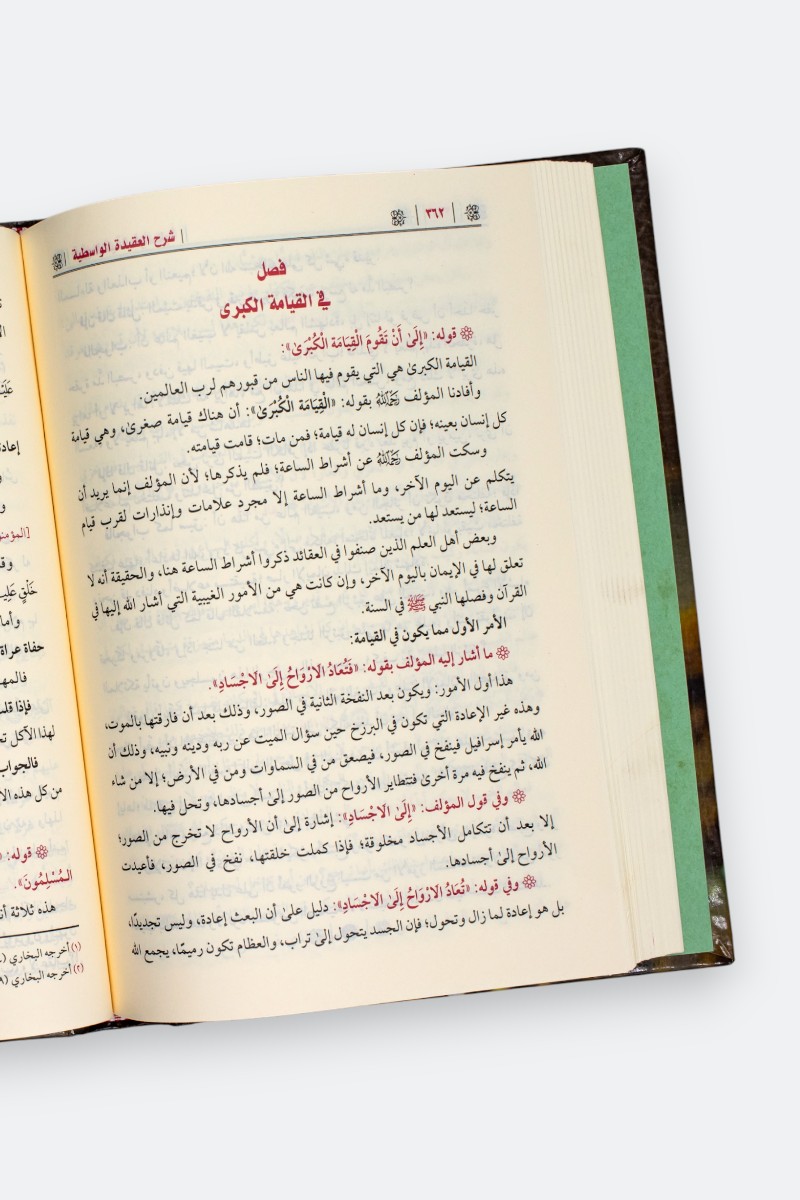 ٣٦٢
شرح العقيدة الواسطية
فصل
في القيامة الكبرى
قوله: «إِلَىٰ أَنْ تَقُومَ الْقِيَامَة الْكُبْرَىٰ»:
القيامة الكبرىٰ هي التي يقوم فيها الناس من قبورهم لرب العالمين.
وأفادنا المؤلف رَحِمَهُ ٱللَّهُ بقوله: «الْقِيَامَة الْكُبْرَىٰ»: أن هناك قيامة صغرىٰ، وهي قيامة
كل إنسان بعينه؛ فإن كل إنسان له قيامة؛ فمن مات؛ قامت قيامته.
وسكت المؤلف رَحِمَهُ ٱللَّهُ عن أشراط الساعة؛ فلم يذكرها؛ لأن المؤلف إنما يريد أن
يتكلم عن اليوم الآخر، وما أشراط الساعة إلا مجرد علامات وإنذارات لقرب قيام
الساعة؛ ليستعد لها من يستعد.
وبعض أهل العلم الذين صنفوا في العقائد ذكروا أشراط الساعة هنا، والحقيقة أنه لا
تعلق لها في الإيمان باليوم الآخر، وإن كانت هي من الأمور الغيبية التي أشار الله إليها في
القرآن وفصلها النبي ﷺ في السنة.
الأمر الأول مما يكون في القيامة:
ما أشار إليه المؤلف بقوله: «فَتُعَادُ الارْوَاحُ إِلَىٰ الاجْسَادِ».
هذا أول الأمور: ويكون بعد النفخة الثانية في الصور، وذلك بعد أن فارقتها بالموت،
وهذه غير الإعادة التي تكون في البرزخ حين سؤال الميت عن ربه ودينه ونبيه، وذلك أن
الله يأمر إسرافيل فينفخ في الصور، فيصعق من في السماوات ومن في الأرض؛ إلا من شاء
الله، ثم ينفخ فيه مرة أخرىٰ فتتطاير الأرواح من الصور إلىٰ أجسادها، وتحل فيها.
وفي قول المؤلف: «إِلَىٰ الاجْسَادِ»: إشارة إلىٰ أن الأرواح لا تخرج من الصور؛
إلا بعد أن تتكامل الأجساد مخلوقة؛ فإذا كملت خلقتها، نفخ في الصور، فأعيدت
الأرواح إلىٰ أجسادها.
وفي قوله: «تُعَادُ الارْوَاحُ إِلَىٰ الاجْسَادِ»: دليل علىٰ أن البعث إعادة، وليس تجديدًا،
بل هو إعادة لما زال وتحول؛ فإن الجسد يتحول إلىٰ تراب، والعظام تكون رميمًا، يجمع الله
إعادة
[المؤمنو
وقـ
خَلْقٍ
وأما
حفاة عراة
فالمه
فإذا قلـ
لهذا الآكل
فالجواب
من كل هذه الا
قوله: «
الْمُسْلِمُونَ».
هذه ثلاثة أنـ
(١) أخرجه البخاري
(٢) أخرجه البخاري